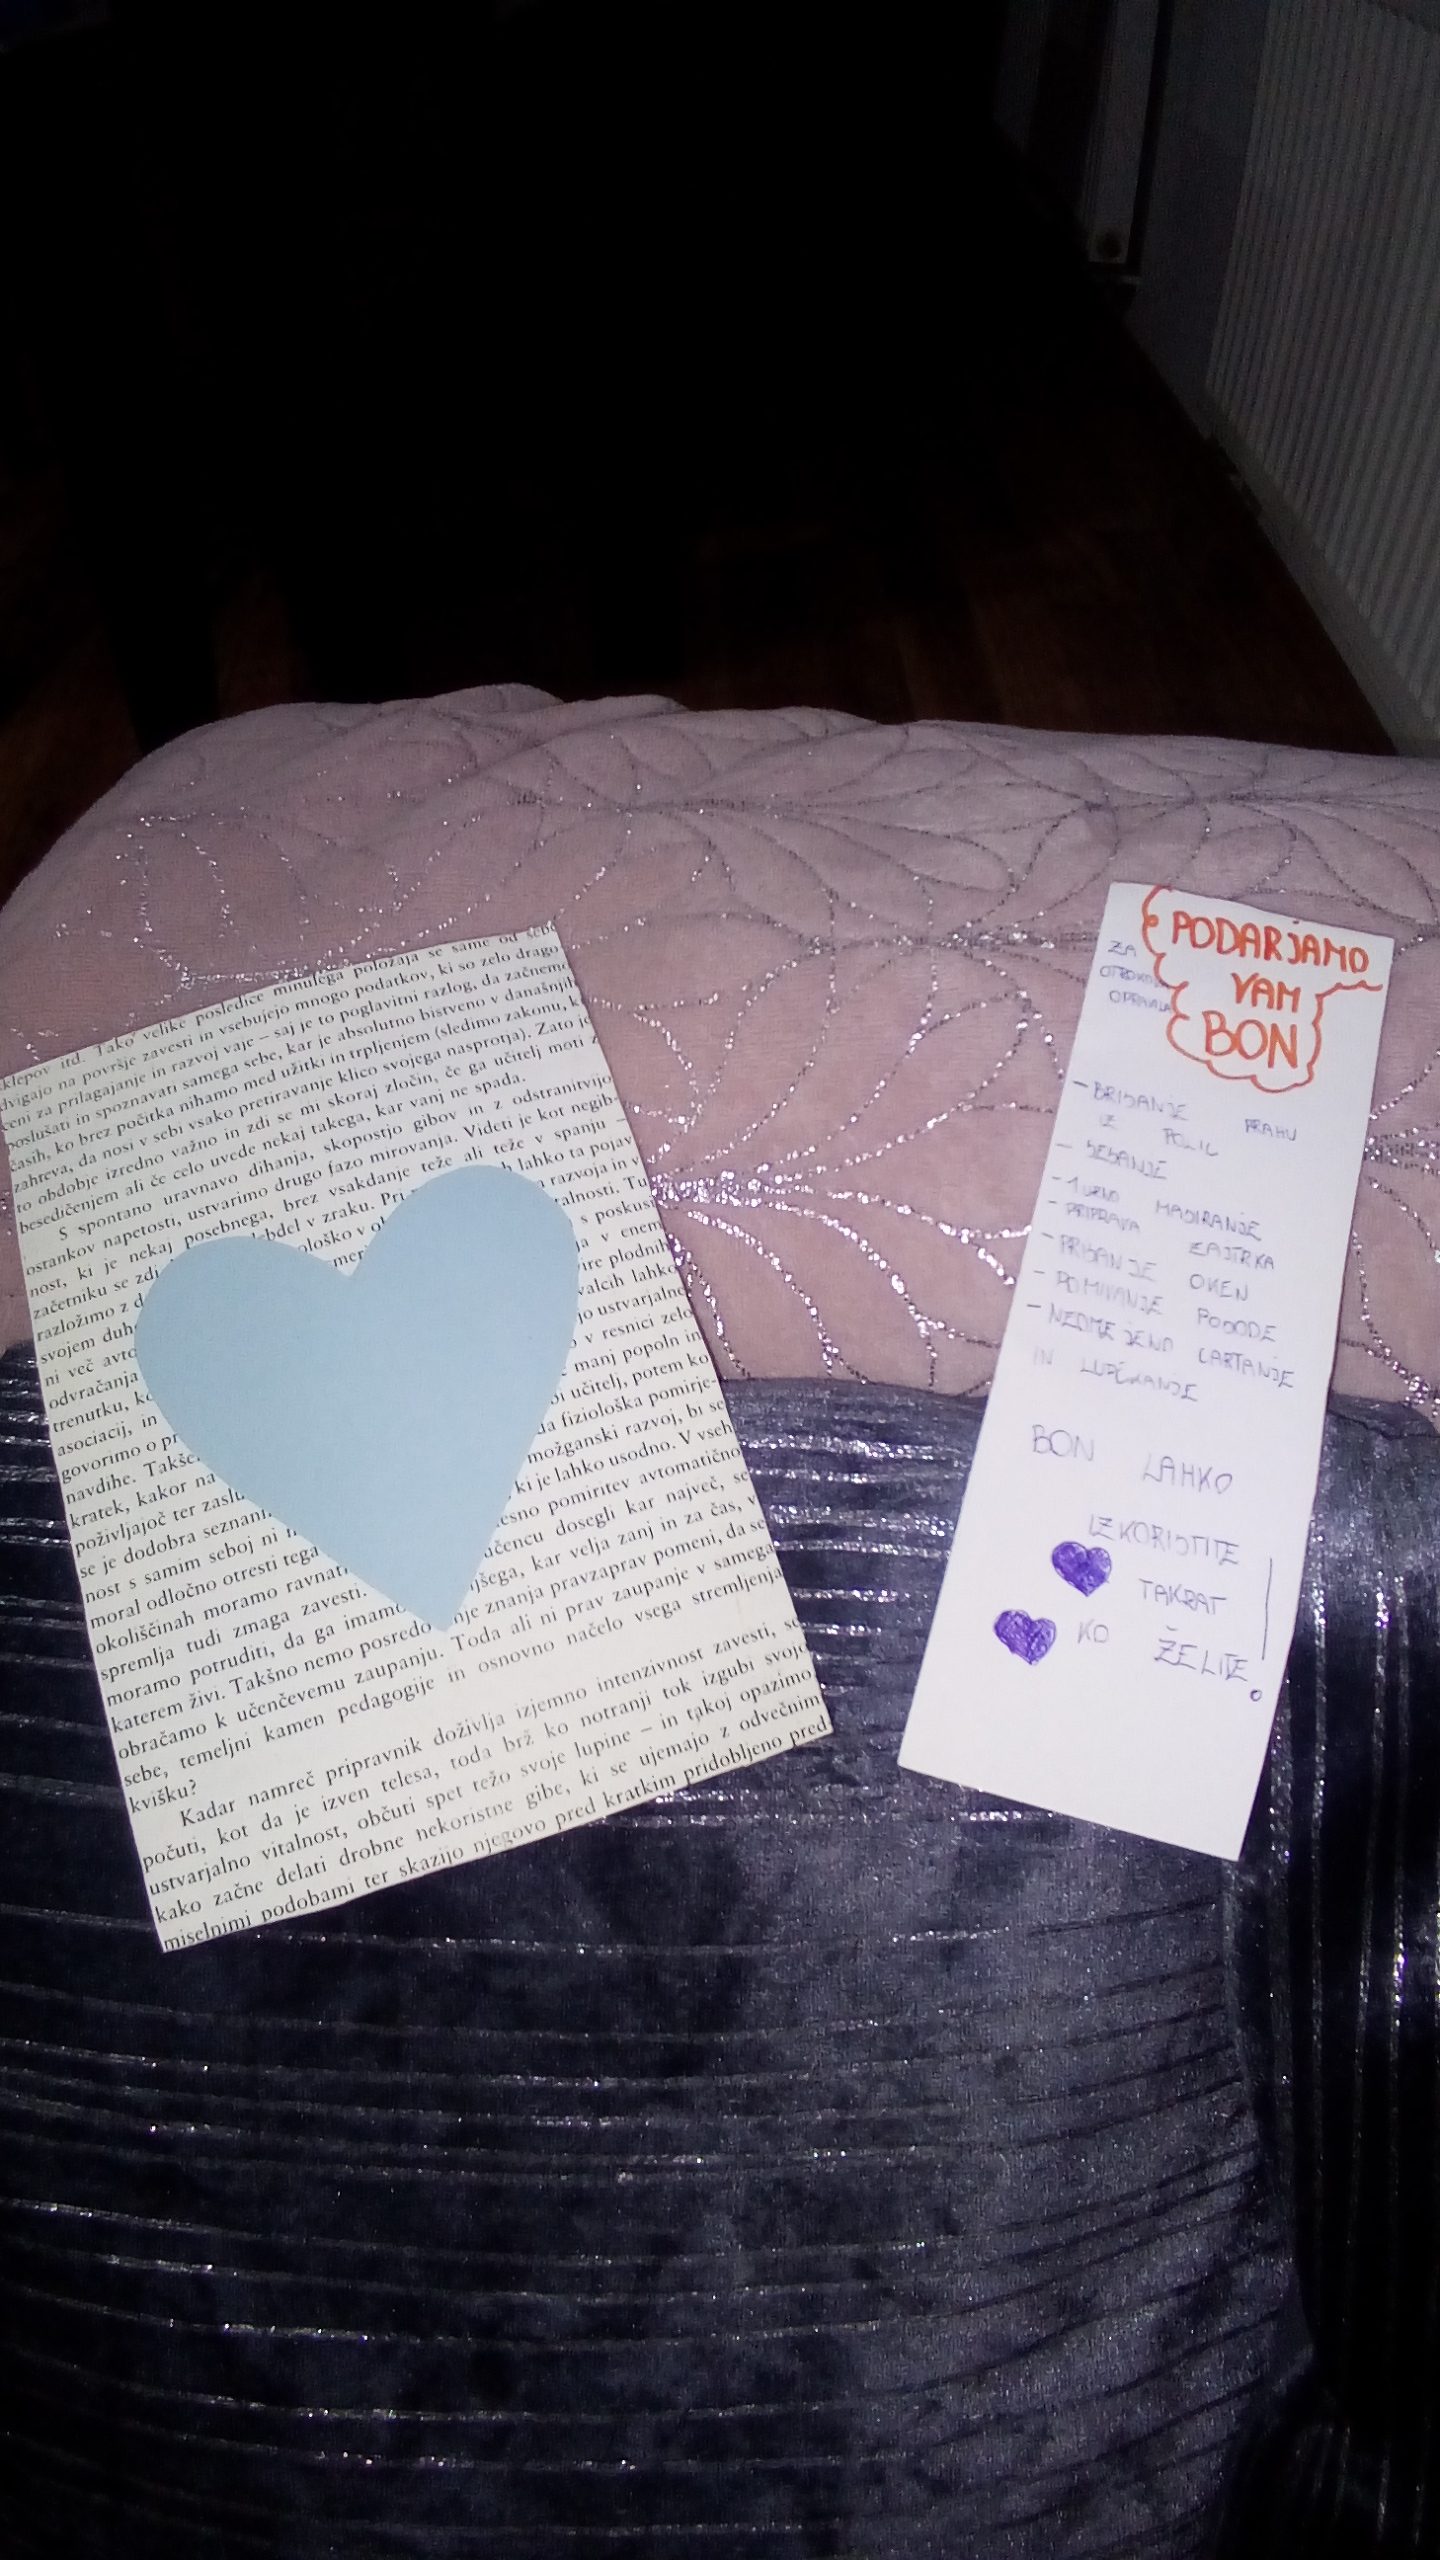 sklepov itd. Tako velike posledice minulega položaja se same od sebe
dvigajo na površje zavesti in vsebujejo mnogo podatkov, ki so zelo drago
ceni za prilagajanje in razvoj vaje – saj je to poglavitni razlog, da začnemo
poslušati in spoznavati samega sebe, kar je absolutno bistveno v današnjih
časih, ko brez počitka nihamo med užitki in trpljenjem (sledimo zakonu, k
zahteva, da nosi v sebi vsako pretiravanje klico svojega nasprotja). Zato je
to obdobje izredno važno in zdi se mi skoraj zločin, če ga učitelj moti z
besedičenjem ali če celo uvede nekaj takega, kar vanj ne spada.
S spontano uravnavo dihanja, skopostjo gibov in z odstranitvijo
ostankov napetosti, ustvarimo drugo fazo mirovanja. Videti je kot negib-
nost, ki je nekaj posebnega, brez vsakdanje teže ali teže v spanju –
začetniku se zdi lebdel v zraku. Pri lahko ta pojav
razložimo z ološko v razvoja in v
svojem duh meri alnosti. Tu
ni več avto s poskusi
odvračanja a v enem
trenutku, ko ire plodnih
asociacij, in valcih lahko
govorimo o pr jo ustvarjalne
navdihe. Takše o v resnici zelo
kratek, kakor na manj popoln in
poživljajoč ter zaslu bi učitelj, potem ko
se je dodobra seznani da fiziološka pomirje-
nost s samim seboj ni možganski razvoj, bi se
moral odločno otresti tega ki je lahko usodno. V vseh
okoliščinah moramo ravnati esno pomiritev avtomatično
spremlja tudi zmaga zavesti. učencu dosegli kar največ, se
moramo potruditi, da ga imamo jšega, kar velja zanj in za čas, v
katerem živi. Takšno nemo posredo nje znanja pravzaprav pomeni, da se
obračamo k učenčevemu zaupanju. Toda ali ni prav zaupanje v samega
sebe, temeljni kamen pedagogije in osnovno načelo vsega stremljenja
kvišku?
Kadar namreč pripravnik doživlja izjemno intenzivnost zavesti, se
počuti, kot da je izven telesa, toda brž ko notranji tok izgubi svojo
ustvarjalno vitalnost, občuti spet težo svoje lupine – in takoj opazimo
kako začne delati drobne nekoristne gibe, ki se ujemajo z odvečnim
miselnimi podobami ter skazijo njegovo pred kratkim pridobljeno pred
PODARJAMO
VAM
BON
ZA
OPRAVILA
- BRISANJE PRAHU
IZ POLIC
- SESANJE
- 1 URNO MASIRANJE
- PRIPRAVA ZAJTRKA
- PRIBANJE OKEN
- POMIVANJE POSODE
- NEOMEJENO CARTANJE
IN LUPČKANJE
BON LAHKO
IZKORISTITE
TAKRAT
KO ŽELITE!